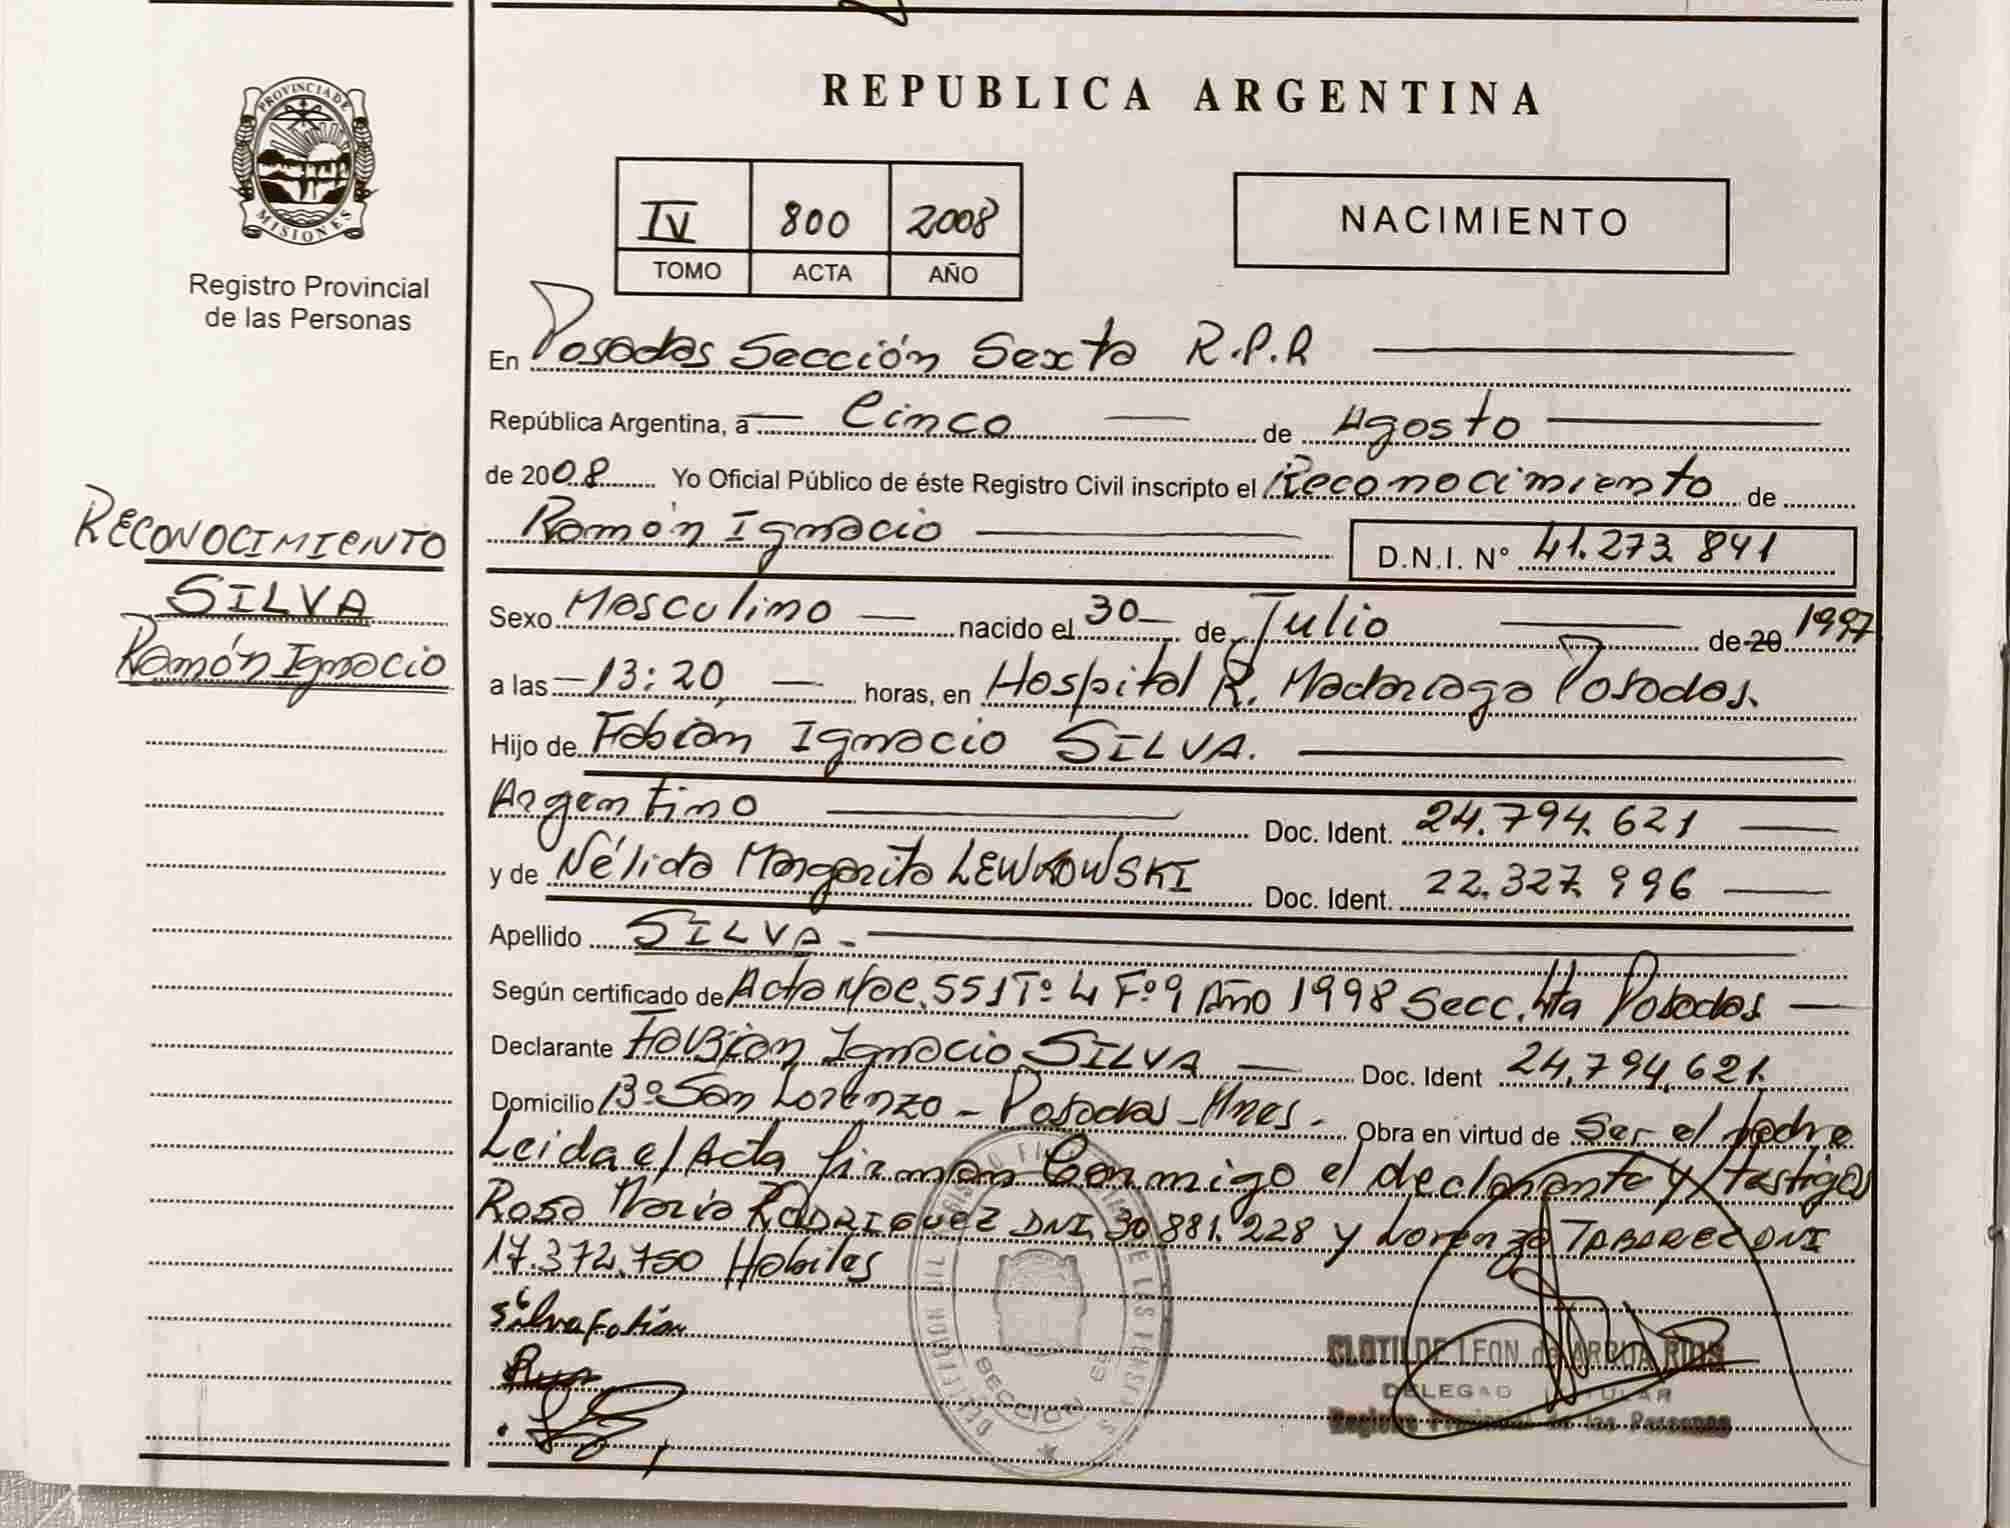 PROVINCIA DE
MISIONES
Registro Provincial
de las Personas
RECONOCIMIENTO
SILVA
Ramón Ignacio
REPUBLICA ARGENTINA
IV 800 2008
TOMO ACTA AÑO
NACIMIENTO
En Posadas Sección Sexta R.P.R
República Argentina, a Cinco de Agosto
de 2008 Yo Oficial Público de éste Registro Civil inscripto el Reconocimiento de
Ramón Ignacio D.N.I. N° 41.273.841
Sexo Masculino nacido el 30 de Julio de 20 1997
a las 13:20 horas, en Hospital R. Madariaga Posadas.
Hijo de Fabian Ignacio SILVA.
Argentino Doc. Ident. 24.794.621
y de Nélida Margarita LEWKOWSKI Doc. Ident. 22.327.996
Apellido SILVA.
Según certificado de Acta Nac. 551 Tº 4 Fº 9 Año 1998 Secc. 4ta Posadas
Declarante Fabian Ignacio SILVA Doc. Ident 24.794.621.
Domicilio Bº San Lorenzo - Posadas - Mnes. Obra en virtud de Ser el padre
Leida el Acta firman Conmigo el declarante y testigos
Rosa María RODRIGUEZ DNI 30.881.228 y Lorenzo TABAREZ DNI
17.372.750 Habiles
Silva Fabián
CLOTILDE LEON de ARRUA RIOS
DELEGADO TITULAR
Registro Provincial de las Personas
SECCION 6